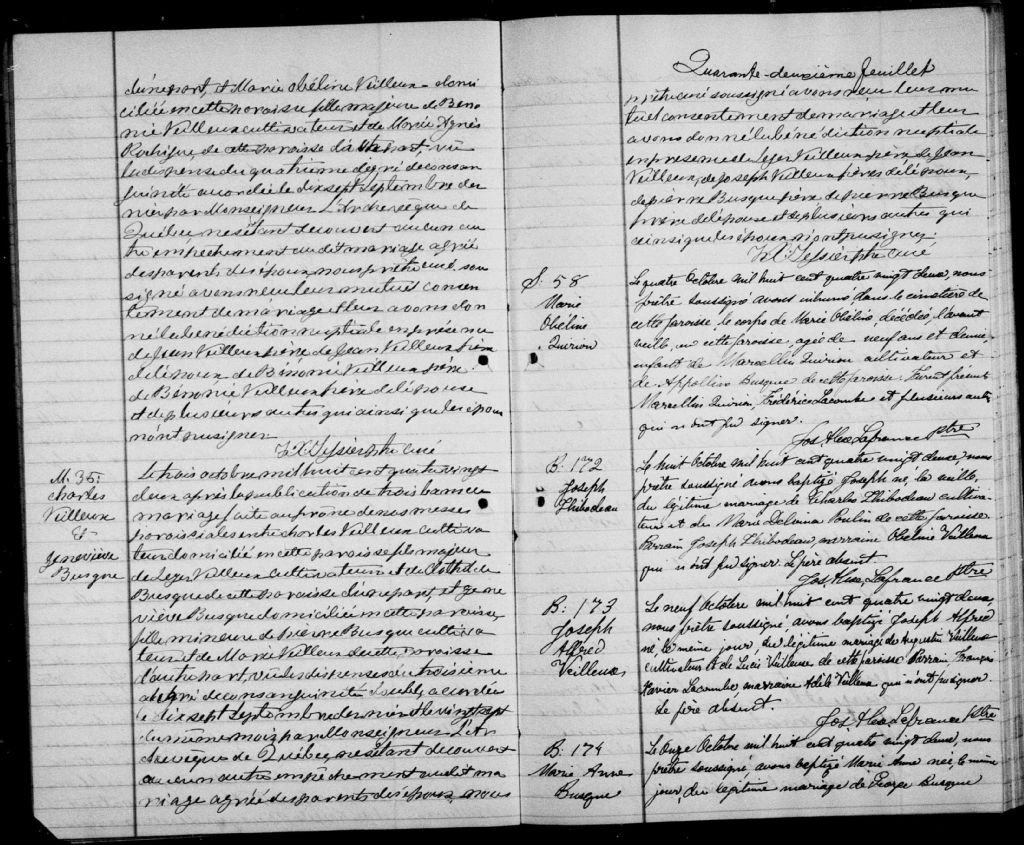 d'une part, et Marie Obéline Veilleux domi
ciliée en cette paroisse fille majeure de Béno
nie Veilleux cultivateur et de Marie Agnès
Rodrigue, de cette paroisse d'autre part, vu
la dispense du quatrième dégré de consan
guinité accordée le dix sept Septembre der
nier par Monseigneur L'Archevêque de
Québec, ne s'étant découvert aucun au
tre empêchement au dit mariage agréé
des parents des époux, nous prêtre curé sous
signé avons reçu leur mutuel consen
tement de mariage et leur avons don
né la bénédiction nuptiale en présence
de Jean Veilleux père de Jean Veilleux frère
de l'époux de Bénonie Veilleux père
de Bénonie Veilleux frère de l'épouse
et de plusieurs autres qui ainsi que les époux
n'ont pu signer
F.X. Tessier ptre curé
M. 35.
Charles
Veilleux
&
Geneviève
Busque
Le trois octobre mil huit cent quatre vingt
deux après la publication de trois bans de
mariage faite au prône de nos messes
paroissiales entre Charles Veilleux cultiva
teur domicilié en cette paroisse fils majeur
de Léger Veilleux cultivateur et de Clothilde
Busque de cette paroisse d'une part, et Gene
viève Busque domiciliée en cette paroisse,
fille mineure de Pierre Busque cultiva
teur et de Marie Veilleux de cette paroisse
d'autre part, vu les dispenses du troisième
dégré de consanguinité double accordées
le dix sept Septembre dernier et le vingt sept
du même mois par Monseigneur L'Ar
chevêque de Québec, ne s'étant découvert
aucun autre empêchement au dit ma
riage agréé des parents des époux, nous
Quarante-deuxième feuillet
prêtre curé soussigné avons reçu leur mu
tuel consentement de mariage et leur
avons donné la bénédiction nuptiale
en présence de Léger Veilleux père de Jean
Veilleux, de Joseph Veilleux frères de l'époux,
de Pierre Busque père de Pierre Busque
frère de l'épouse et de plusieurs autres qui
ainsi que les époux n'ont pu signer
F.X. Tessier ptre curé
S. 58
Marie
Obéline
Quirion
Le quatre Octobre mil huit cent quatre vingt deux, nous
prêtre soussigné avons inhumé dans le cimetière de
cette paroisse, le corps de Marie Obéline, décédée l'avant
veille, en cette paroisse, agée de neuf ans et demie,
enfant de Marcellin Quirion cultivateur et
de Appolline Busque de cette paroisse. Furent présents
Marcellin Quirion, Frédéric Lacombe et plusieurs autres
qui n'ont pu signer.
Jos. Alex. Lafrance Ptre
B: 172
Joseph
Thibodeau
Le huit Octobre mil huit cent quatre vingt deux, nous
prêtre soussigné avons baptizé Joseph né, la veille,
du légitime mariage de Charles Thibodeau cultiva-
teur et de Marie Delvina Poulin de cette paroisse
Parrain Joseph Thibodeau, marraine Obéline Veilleux
qui n'ont pu signer. Le père absent.
Jos. Alex. Lafrance Ptre
B: 173
Joseph
Alfred
Veilleux
Le neuf Octobre mil huit cent quatre vingt deux,
nous prêtre soussigné avons baptizé Joseph Alfred
né, le même jour, du légitime mariage de Augustin Veilleux
cultivateur et de Lucie Veilleux de cette paroisse Parrain, François
Xavier Lacombe, marraine Adèle Veilleux qui n'ont pu signer
Le père absent.
Jos. Alex. Lafrance Ptre
B: 174
Marie Anne
Busque
Le Onze Octobre mil huit cent quatre vingt deux, nous
prêtre soussigné, avons baptizé Marie Anne née, le même
jour, du légitime mariage de George Busque